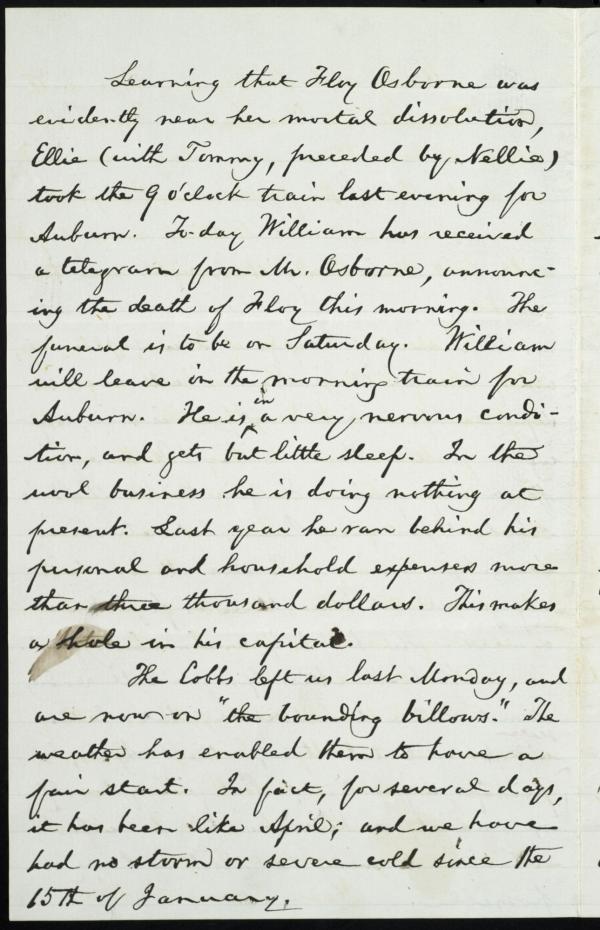 Learning that Floy Osborne was
evidently near her mortal dissolution,
Ellie (with Tommy, preceded by Nellie)
took the 9 o'clock train last evening for
Auburn. To-day William has received
a telegram from Mr. Osborne, announc-
ing the death of Floy this morning. The
funeral is to be on Saturday. William
will leave in the morning train for
Auburn. He is in a very nervous condi-
tion, and gets but little sleep. In the
wool business he is doing nothing at
present. Last year he ran behind his
personal and household expenses more
than three thousand dollars. This makes
a hole in his capital.
The Cobbs left us last Monday, and
are now on "the bounding billows." The
weather has enabled them to have a
fair start. In fact, for several days,
it has been like April; and we have
had no storm or severe cold since the
15th of January.